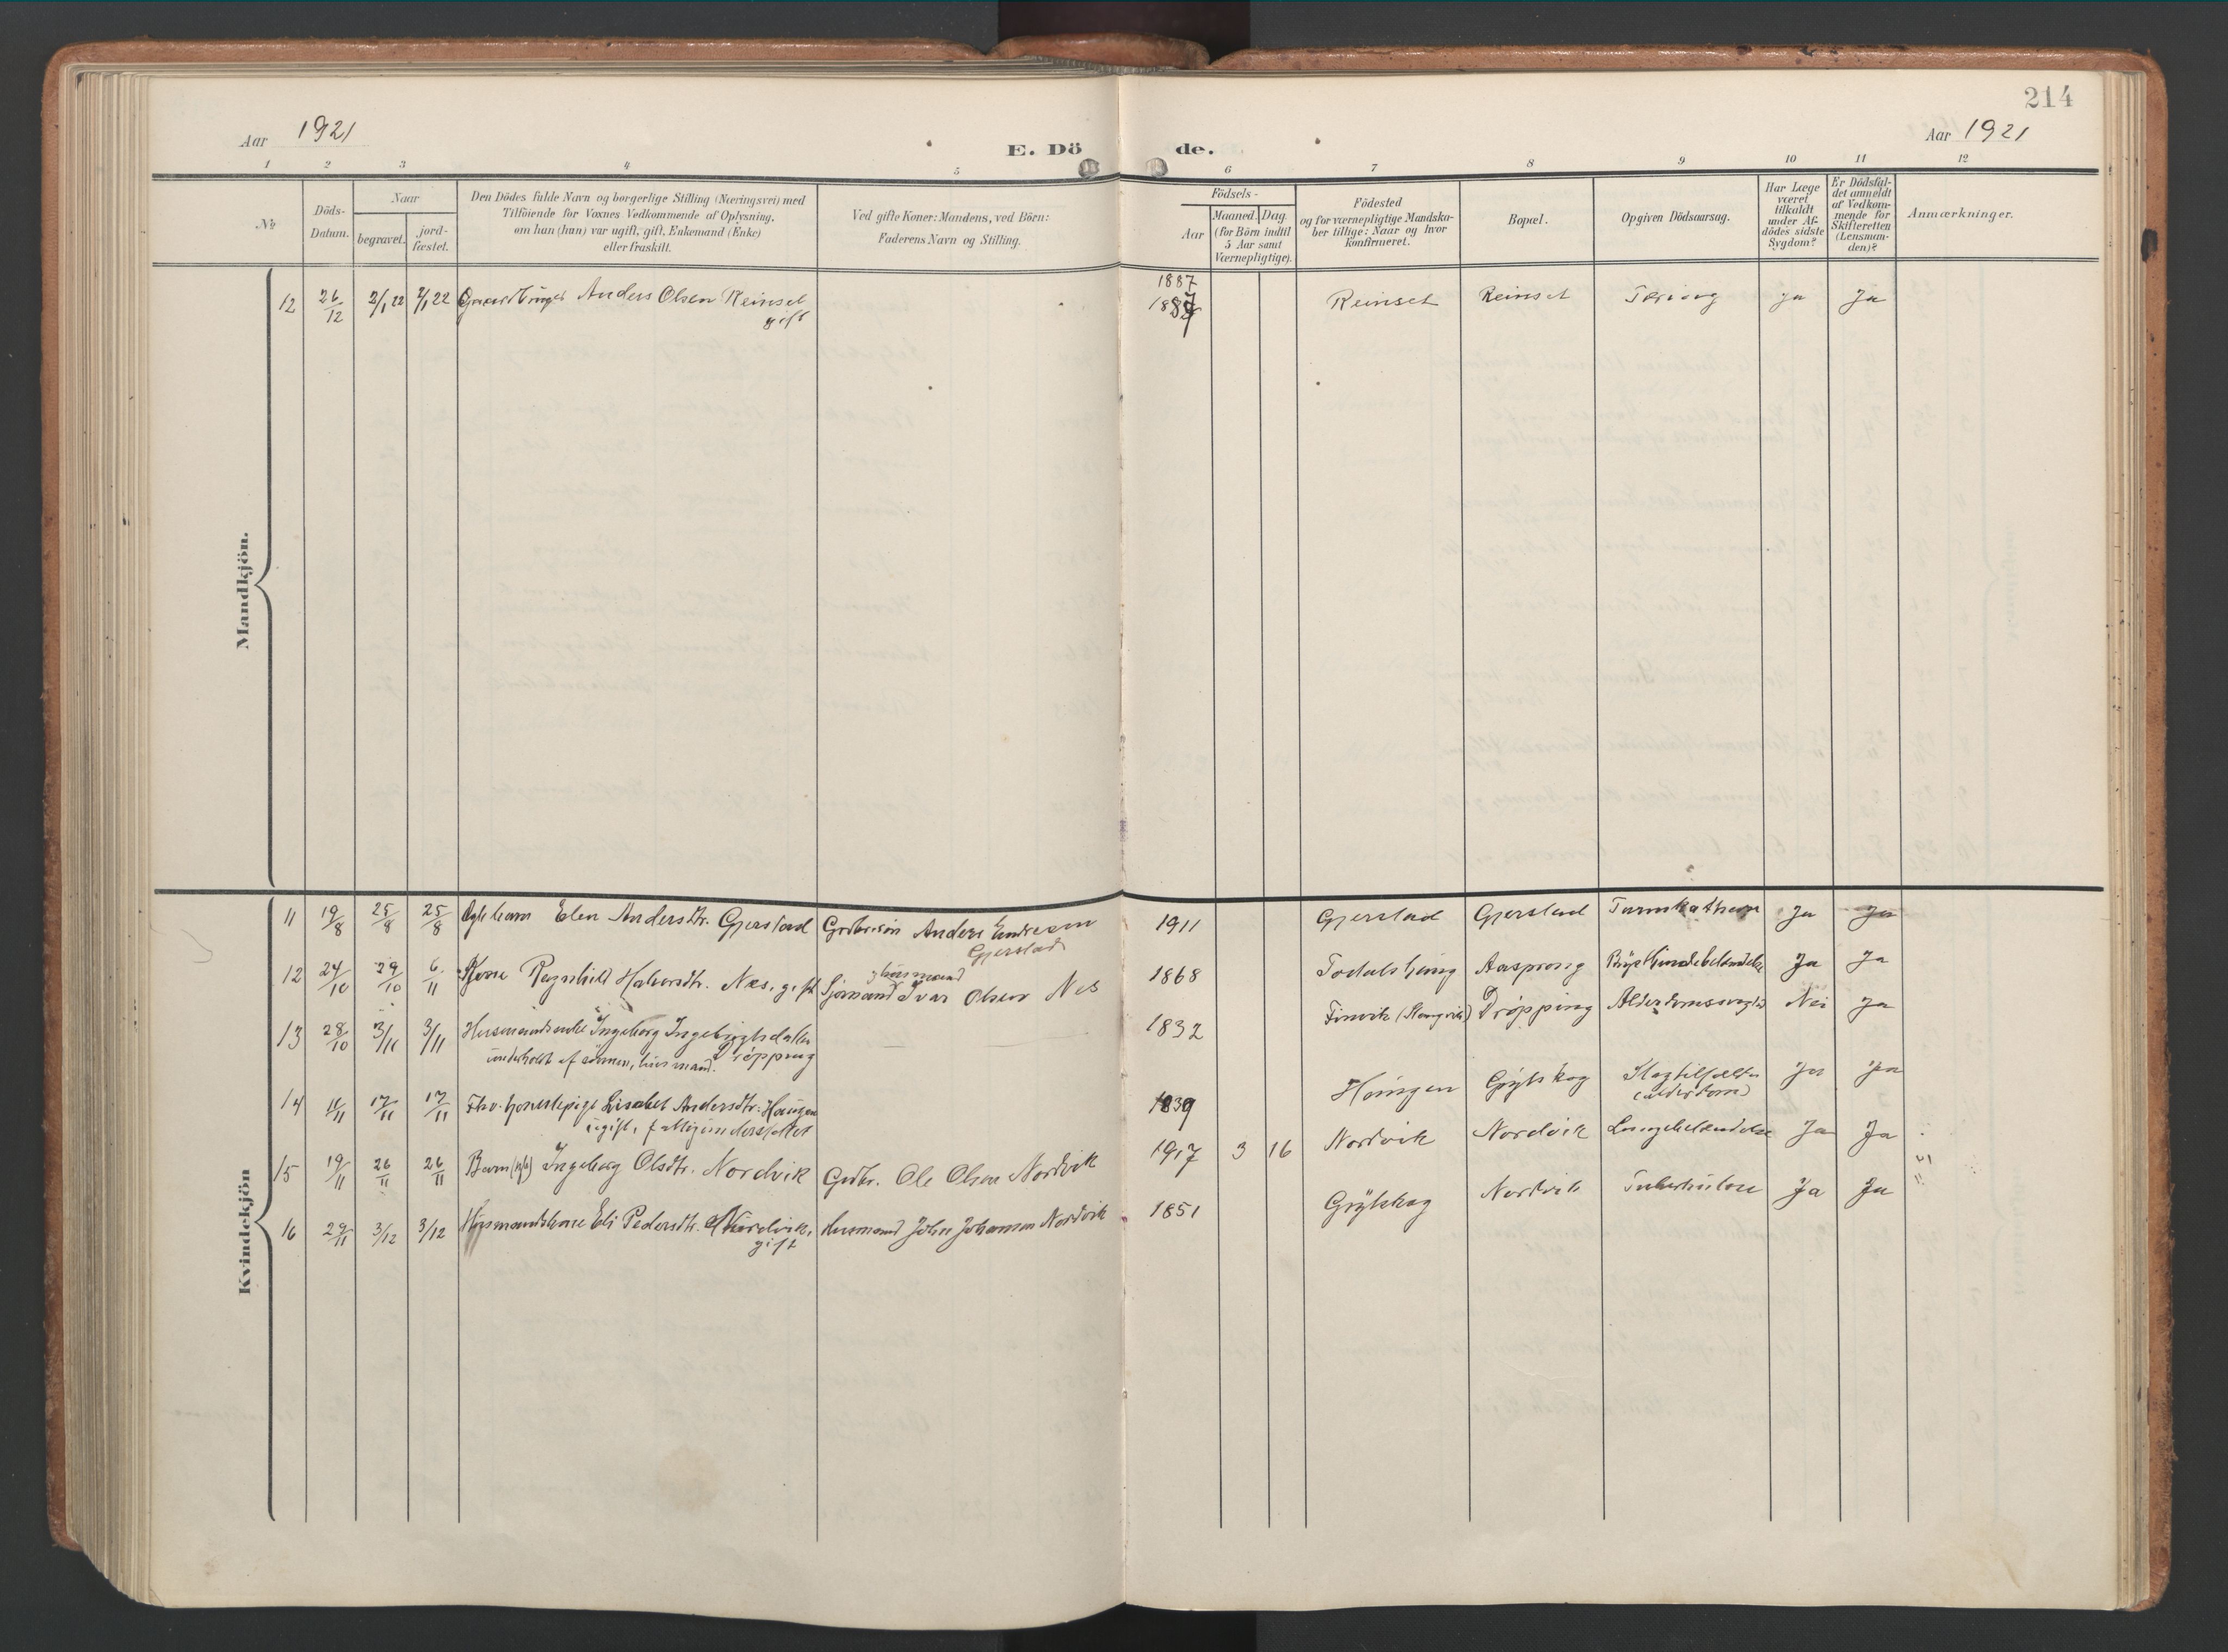 214
Aar 1921
Aar 1921
E. Dö de.
1 2 3 4 5 6 7 8 9 10 11 12
No
Döds-
Datum.
Naar
begravet.
jord-
fæstet.
Den Dödes fulde Navn og borgerlige Stilling (Næringsvei) med
Tilföiende for Voxnes Vedkommende af Oplysning,
om han (hun) var ugift, gift, Enkemand (Enke)
eller fraskilt.
Ved gifte Koner: Mandens, ved Börn:
Faderens Navn og Stilling.
Födsels-
Aar
Maaned. Dag.
(for Börn indtil
5 Aar samt
Værnepligtige).
Födested
og for værnepligtige Mandska-
ber tillige: Naar og hvor
konfirmeret.
Bopæl.
Opgiven Dödsaarsag.
Har Læge
været
tilkaldt
under Af-
dödes sidste
Sygdom?
Er Dödsfal-
det anmeldt
af Vedkom-
mende for
Skifteretten
(Lensman-
den)?
Anmærkninger.
Mandkjön.
1887
12 26/12 2/1 22 2/1 22 Anders Olsen Reinset 1887 Reinset Reinset Tæring ja Ja
gift
Kvindekjön
11 19/8 25/8 25/8 Elen Andersdtr. Gjerstad Anders Endresen 1911 Gjerstad Gjerstad Ja Ja
Gjerstad
husmand
12 24/10 29/10 6/11 Kone Ragnhild Halvorsdtr. Næs, gift Sjømand Ivar Olsen Nes 1868 Aasprong Ja Ja
13 28/10 3/11 3/11 Husmandsenke Ingeborg Ingebrigtsdatter 1832 Drøpping Nei Ja
underholdt af sønnen, husmand. Drøpping
14 11/11 17/11 17/11 Lisabet Andersdtr. Haugen 1839 Haugen Grytskog Ja Ja
ugift, fattigunderstøttet
(alderdom)
15 19/11 26/11 26/11 Barn Ingeborg Olsdtr. Nordvik Grdbr. Ole Olsen Nordvik 1917 3 16 Nordvik Nordvik Lungebetændelse Ja Ja
16 29/11 3/12 3/12 Husmandskone Eli Pedersdtr. Nordvik, Husmand John Johansen Nordvik 1851 Grytskog Nordvik Tuberkulose Ja Ja
gift